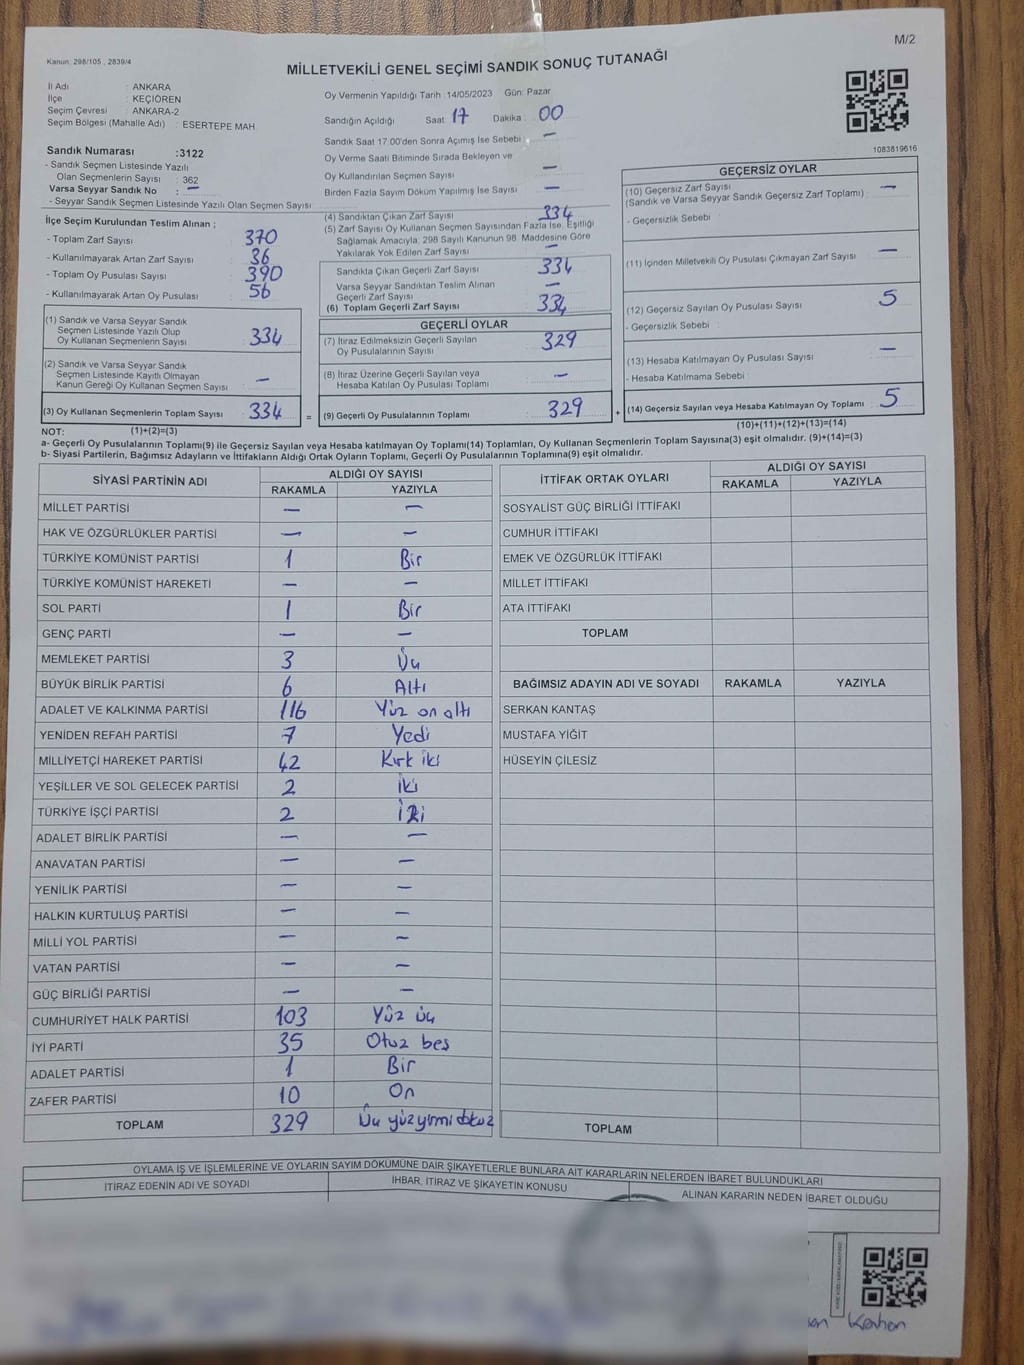 M/2
Kanun: 298/105 , 2839/4
MİLLETVEKİLİ GENEL SEÇİMİ SANDIK SONUÇ TUTANAĞI
İl Adı : ANKARA
İlçe : KEÇİÖREN
Seçim Çevresi : ANKARA-2
Seçim Bölgesi (Mahalle Adı) : ESERTEPE MAH.
Oy Vermenin Yapıldığı Tarih :14/05/2023 Gün: Pazar
Sandığın Açıldığı Saat: 17 Dakika : 00
Sandık Saat 17:00'den Sonra Açımış İse Sebebi : —
Oy Verme Saati Bitiminde Sırada Bekleyen ve
Oy Kullandırılan Seçmen Sayısı —
Birden Fazla Sayım Döküm Yapılmış İse Sayısı —
1083819616
Sandık Numarası :3122
- Sandık Seçmen Listesinde Yazılı
Olan Seçmenlerin Sayısı : 362
Varsa Seyyar Sandık No : —
- Seyyar Sandık Seçmen Listesinde Yazılı Olan Seçmen Sayısı
İlçe Seçim Kurulundan Teslim Alınan ;
- Toplam Zarf Sayısı : 370
- Kullanılmayarak Artan Zarf Sayısı : 36
- Toplam Oy Pusulası Sayısı : 390
- Kullanılmayarak Artan Oy Pusulası : 56
(1) Sandık ve Varsa Seyyar Sandık
Seçmen Listesinde Yazılı Olup
Oy Kullanan Seçmenlerin Sayısı : 334
(2) Sandık ve Varsa Seyyar Sandık
Seçmen Listesinde Kayıtlı Olmayan
Kanun Gereği Oy Kullanan Seçmen Sayısı : —
(3) Oy Kullanan Seçmenlerin Toplam Sayısı : 334
(4) Sandıktan Çıkan Zarf Sayısı 334
(5) Zarf Sayısı Oy Kullanan Seçmen Sayısından Fazla İse, Eşitliği
Sağlamak Amacıyla; 298 Sayılı Kanunun 98. Maddesine Göre
Yakılarak Yok Edilen Zarf Sayısı —
Sandıkta Çıkan Geçerli Zarf Sayısı 334
Varsa Seyyar Sandıktan Teslim Alınan
Geçerli Zarf Sayısı —
(6) Toplam Geçerli Zarf Sayısı 334
GEÇERLİ OYLAR
(7) İtiraz Edilmeksizin Geçerli Sayılan
Oy Pusulalarının Sayısı 329
(8) İtiraz Üzerine Geçerli Sayılan veya
Hesaba Katılan Oy Pusulası Toplamı —
= (9) Geçerli Oy Pusulalarının Toplamı 329
GEÇERSİZ OYLAR
(10) Geçersiz Zarf Sayısı
(Sandık ve Varsa Seyyar Sandık Geçersiz Zarf Toplamı) : —
- Geçersizlik Sebebi :
(11) İçinden Milletvekili Oy Pusulası Çıkmayan Zarf Sayısı : —
(12) Geçersiz Sayılan Oy Pusulası Sayısı : 5
- Geçersizlik Sebebi :
(13) Hesaba Katılmayan Oy Pusulası Sayısı : —
- Hesaba Katılmama Sebebi :
+ (14) Geçersiz Sayılan veya Hesaba Katılmayan Oy Toplamı : 5
NOT: (1)+(2)=(3) (10)+(11)+(12)+(13)=(14)
a- Geçerli Oy Pusulalarının Toplamı(9) ile Geçersiz Sayılan veya Hesaba katılmayan Oy Toplamı(14) Toplamları, Oy Kullanan Seçmenlerin Toplam Sayısına(3) eşit olmalıdır. (9)+(14)=(3)
b- Siyasi Partilerin, Bağımsız Adayların ve İttifakların Aldığı Ortak Oyların Toplamı, Geçerli Oy Pusulalarının Toplamına(9) eşit olmalıdır.
SİYASİ PARTİNİN ADI ALDIĞI OY SAYISI
RAKAMLA YAZIYLA
MİLLET PARTİSİ — —
HAK VE ÖZGÜRLÜKLER PARTİSİ — —
TÜRKİYE KOMÜNİST PARTİSİ 1 Bir
TÜRKİYE KOMÜNİST HAREKETİ — —
SOL PARTİ 1 Bir
GENÇ PARTİ — —
MEMLEKET PARTİSİ 3 Üç
BÜYÜK BİRLİK PARTİSİ 6 Altı
ADALET VE KALKINMA PARTİSİ 116 Yüz on altı
YENİDEN REFAH PARTİSİ 7 Yedi
MİLLİYETÇİ HAREKET PARTİSİ 42 Kırk iki
YEŞİLLER VE SOL GELECEK PARTİSİ 2 İki
TÜRKİYE İŞÇİ PARTİSİ 2 İki
ADALET BİRLİK PARTİSİ — —
ANAVATAN PARTİSİ — —
YENİLİK PARTİSİ — —
HALKIN KURTULUŞ PARTİSİ — —
MİLLİ YOL PARTİSİ — —
VATAN PARTİSİ — —
GÜÇ BİRLİĞİ PARTİSİ — —
CUMHURİYET HALK PARTİSİ 103 Yüz üç
İYİ PARTİ 35 Otuz beş
ADALET PARTİSİ 1 Bir
ZAFER PARTİSİ 10 On
TOPLAM 329 Üç yüz yirmi dokuz
İTTİFAK ORTAK OYLARI ALDIĞI OY SAYISI
RAKAMLA YAZIYLA
SOSYALİST GÜÇ BİRLİĞİ İTTİFAKI
CUMHUR İTTİFAKI
EMEK VE ÖZGÜRLÜK İTTİFAKI
MİLLET İTTİFAKI
ATA İTTİFAKI
TOPLAM
BAĞIMSIZ ADAYIN ADI VE SOYADI RAKAMLA YAZIYLA
SERKAN KANTAŞ
MUSTAFA YİĞİT
HÜSEYİN ÇİLESİZ
TOPLAM
OYLAMA İŞ VE İŞLEMLERİNE VE OYLARIN SAYIM DÖKÜMÜNE DAİR ŞİKAYETLERLE BUNLARA AİT KARARLARIN NELERDEN İBARET BULUNDUKLARI
İTİRAZ EDENİN ADI VE SOYADI İHBAR, İTİRAZ VE ŞİKAYETİN KONUSU ALINAN KARARIN NEDEN İBARET OLDUĞU